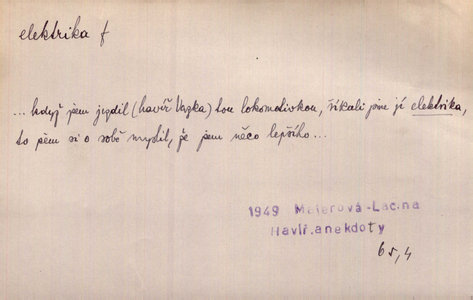 elektrika f
... když jsem jezdil (havíř Vazka) tou lokomotivkou, říkali jsme jí elektrika,
to jsem si o sobě myslil, že jsem něco lepšího...
1949 Majerová-Lacina
Havíř.anekdoty
65,4